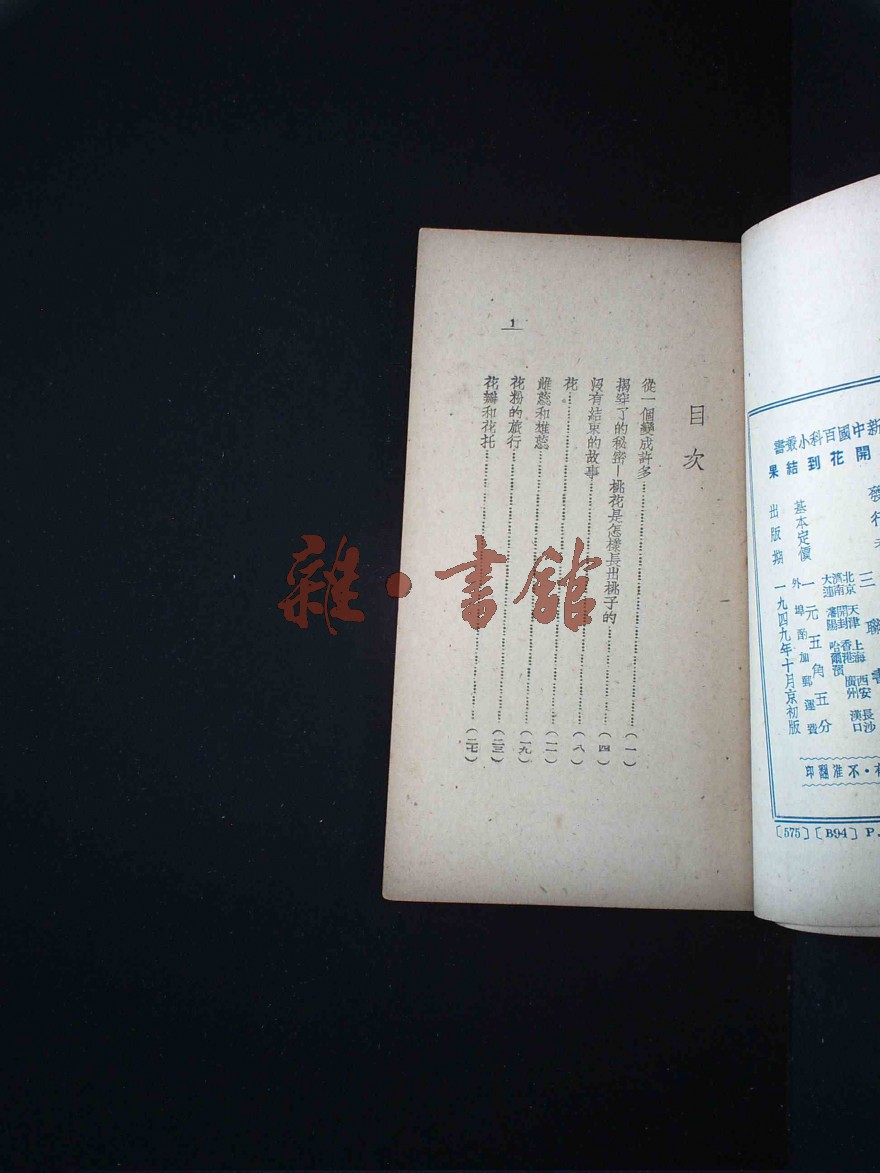 新中國百科小叢書
開花到結果
發行者 三聯書
北京 天津 上海 西安 長沙
濟南 開封 香港 廣州 漢口
大連 瀋陽 哈爾濱
基本定價 一元五角五分
外埠酌加郵運費
出版期 一九四九年十月京初版
有・不准翻印
[575] [B94] P.
目次
從一個變成許多……(一)
揭穿了的秘密—桃花是怎樣長出桃子的……(四)
沒有結束的故事……(八)
花……(一一)
雌蕊和雄蕊……(一九)
花粉的旅行……(二三)
花瓣和花托……(二七)
1
雜・書館